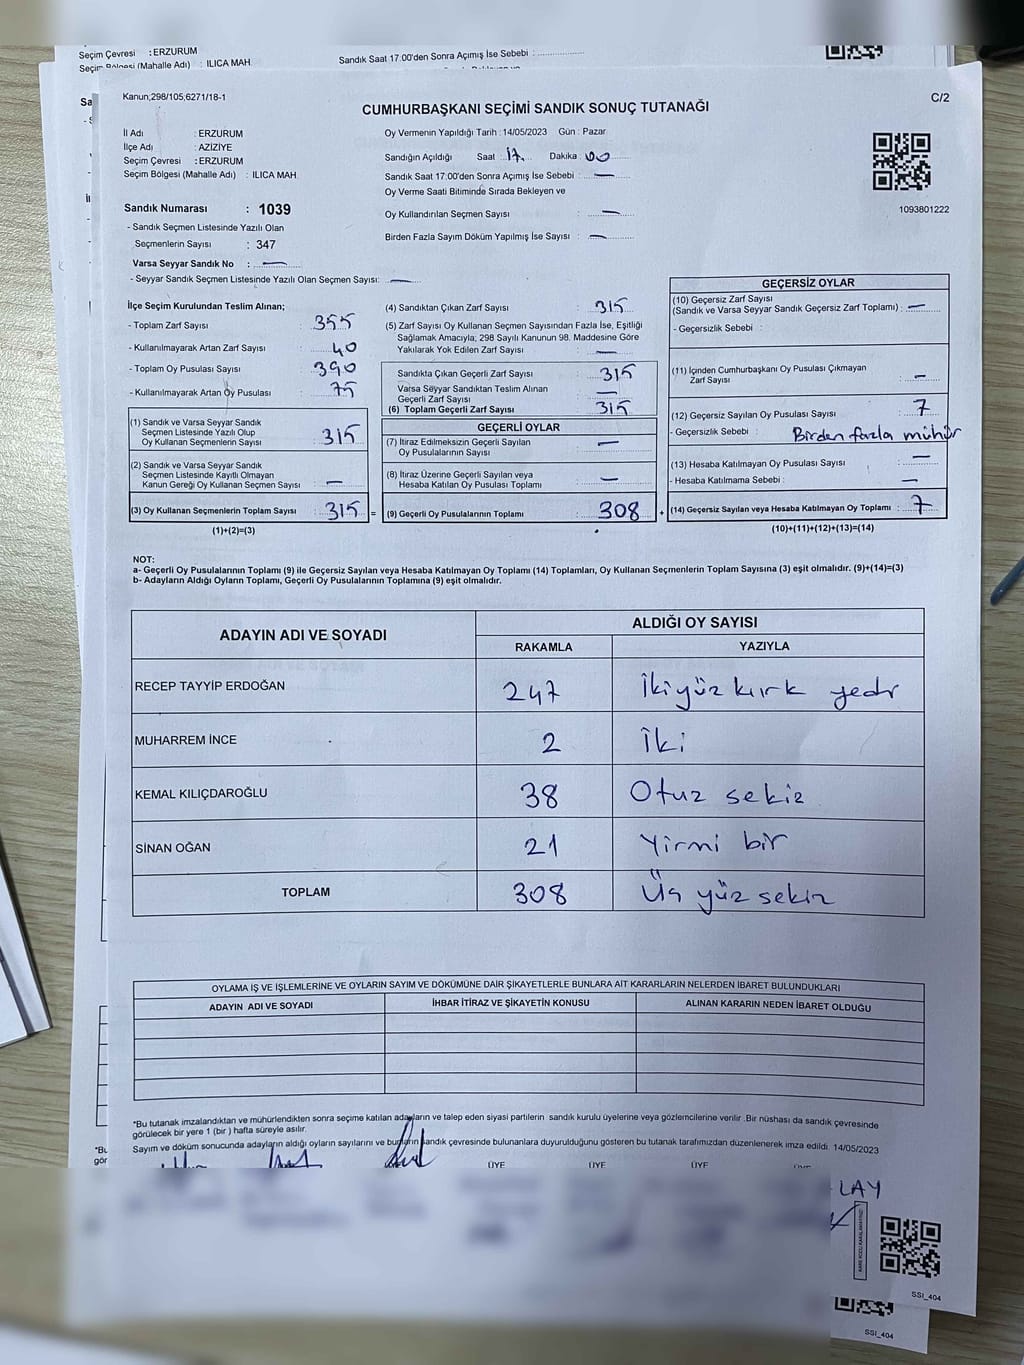 Seçim Çevresi : ERZURUM
Seçim Bölgesi (Mahalle Adı) : ILICA MAH.
Sandık Saat 17:00'den Sonra Açımış İse Sebebi :
Kanun;298/105;6271/18-1
CUMHURBAŞKANI SEÇİMİ SANDIK SONUÇ TUTANAĞI
C/2
İl Adı : ERZURUM
İlçe Adı : AZİZİYE
Seçim Çevresi : ERZURUM
Seçim Bölgesi (Mahalle Adı) : ILICA MAH.
Oy Vermenin Yapıldığı Tarih : 14/05/2023 Gün : Pazar
Sandığın Açıldığı Saat : 17 Dakika : 00
Sandık Saat 17:00'den Sonra Açımış İse Sebebi : —
Oy Verme Saati Bitiminde Sırada Bekleyen ve
Oy Kullandırılan Seçmen Sayısı : —
Birden Fazla Sayım Döküm Yapılmış İse Sayısı : —
1093801222
Sandık Numarası : 1039
- Sandık Seçmen Listesinde Yazılı Olan
Seçmenlerin Sayısı : 347
Varsa Seyyar Sandık No : —
- Seyyar Sandık Seçmen Listesinde Yazılı Olan Seçmen Sayısı: —
İlçe Seçim Kurulundan Teslim Alınan;
- Toplam Zarf Sayısı : 355
- Kullanılmayarak Artan Zarf Sayısı : 40
- Toplam Oy Pusulası Sayısı : 390
- Kullanılmayarak Artan Oy Pusulası : 75
(1) Sandık ve Varsa Seyyar Sandık
Seçmen Listesinde Yazılı Olup
Oy Kullanan Seçmenlerin Sayısı : 315
(2) Sandık ve Varsa Seyyar Sandık
Seçmen Listesinde Kayıtlı Olmayan
Kanun Gereği Oy Kullanan Seçmen Sayısı : —
(3) Oy Kullanan Seçmenlerin Toplam Sayısı : 315
(1)+(2)=(3)
(4) Sandıktan Çıkan Zarf Sayısı : 315
(5) Zarf Sayısı Oy Kullanan Seçmen Sayısından Fazla İse, Eşitliği
Sağlamak Amacıyla; 298 Sayılı Kanunun 98. Maddesine Göre
Yakılarak Yok Edilen Zarf Sayısı : —
Sandıkta Çıkan Geçerli Zarf Sayısı : 315
Varsa Seyyar Sandıktan Teslim Alınan
Geçerli Zarf Sayısı : —
(6) Toplam Geçerli Zarf Sayısı : 315
GEÇERLİ OYLAR
(7) İtiraz Edilmeksizin Geçerli Sayılan
Oy Pusulalarının Sayısı : —
(8) İtiraz Üzerine Geçerli Sayılan veya
Hesaba Katılan Oy Pusulası Toplamı : —
= (9) Geçerli Oy Pusulalarının Toplamı : 308
GEÇERSİZ OYLAR
(10) Geçersiz Zarf Sayısı
(Sandık ve Varsa Seyyar Sandık Geçersiz Zarf Toplamı) : —
- Geçersizlik Sebebi :
(11) İçinden Cumhurbaşkanı Oy Pusulası Çıkmayan
Zarf Sayısı : —
(12) Geçersiz Sayılan Oy Pusulası Sayısı : 7
- Geçersizlik Sebebi : Birden fazla mühür
(13) Hesaba Katılmayan Oy Pusulası Sayısı : —
- Hesaba Katılmama Sebebi : —
+ (14) Geçersiz Sayılan veya Hesaba Katılmayan Oy Toplamı : 7
(10)+(11)+(12)+(13)=(14)
NOT:
a- Geçerli Oy Pusulalarının Toplamı (9) ile Geçersiz Sayılan veya Hesaba Katılmayan Oy Toplamı (14) Toplamları, Oy Kullanan Seçmenlerin Toplam Sayısına (3) eşit olmalıdır. (9)+(14)=(3)
b- Adayların Aldığı Oyların Toplamı, Geçerli Oy Pusulalarının Toplamına (9) eşit olmalıdır.
ADAYIN ADI VE SOYADI
ALDIĞI OY SAYISI
RAKAMLA YAZIYLA
RECEP TAYYİP ERDOĞAN 247 İkiyüz kırk yedi
MUHARREM İNCE 2 İki
KEMAL KILIÇDAROĞLU 38 Otuz sekiz
SİNAN OĞAN 21 Yirmi bir
TOPLAM 308 Üç yüz sekiz
OYLAMA İŞ VE İŞLEMLERİNE VE OYLARIN SAYIM VE DÖKÜMÜNE DAİR ŞİKAYETLERLE BUNLARA AİT KARARLARIN NELERDEN İBARET BULUNDUKLARI
ADAYIN ADI VE SOYADI İHBAR İTİRAZ VE ŞİKAYETİN KONUSU ALINAN KARARIN NEDEN İBARET OLDUĞU
*Bu tutanak imzalandıktan ve mühürlendikten sonra seçime katılan adayların ve talep eden siyasi partilerin sandık kurulu üyelerine veya gözlemcilerine verilir .Bir nüshası da sandık çevresinde
görülecek bir yere 1 (bir ) hafta süreyle asılır.
Sayım ve döküm sonucunda adayların aldığı oyların sayılarını ve bunların sandık çevresinde bulunanlara duyurulduğunu gösteren bu tutanak tarafımızdan düzenlenerek imza edildi. 14/05/2023
ÜYE ÜYE ÜYE
LAY
SSI_404
SSI_404